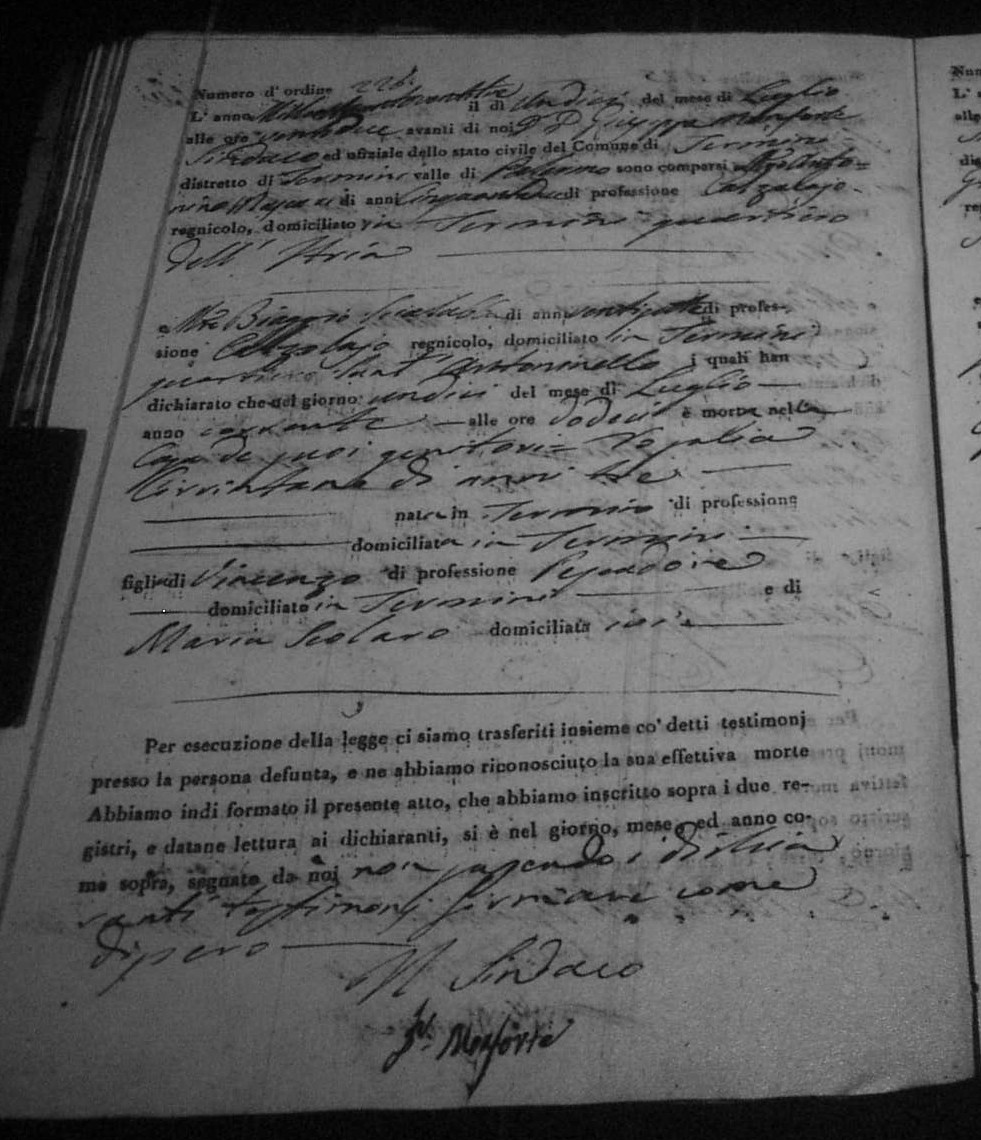 Numero d' ordine 226.
L' anno il dì Undici del mese di Luglio
alle ore ventidue avanti di noi D. D. Giuseppe Monforte
Sindaco ed ufiziale dello stato civile del Comune di Termini
distretto di Termini valle di Palermo sono comparsi
di anni di professione Calzolajo
regnicolo, domiciliato in Termini quartiero
dell' Itria
e Mro Biaggio di anni di profes-
sione Calzolajo regnicolo, domiciliato in Termini
quartiero Sant' Antoninello i quali han
dichiarato che nel giorno undici del mese di Luglio
anno corrente alle ore dodeci è morta nella
Casa de suoi genitori Rosalia
di anni tre
nata in Termini di professione
domiciliata in Termini
figlia di Vincenzo di professione Pescadore
domiciliato in Termini e di
Maria Scolaro domiciliata ivi
Per esecuzione della legge ci siamo trasferiti insieme co' detti testimonj
presso la persona defunta, e ne abbiamo riconosciuto la sua effettiva morte
Abbiamo indi formato il presente atto, che abbiamo inscritto sopra i due re-
gistri, e datane lettura ai dichiaranti, si è nel giorno, mese, ed anno co-
me sopra, segnato da noi non sapendo i dichia
ranti testimonj firmare come
dissero
Il Sindaco
Monforte